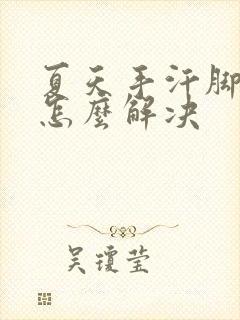 夏天手汗脚
怎麼解决
吴琼莹